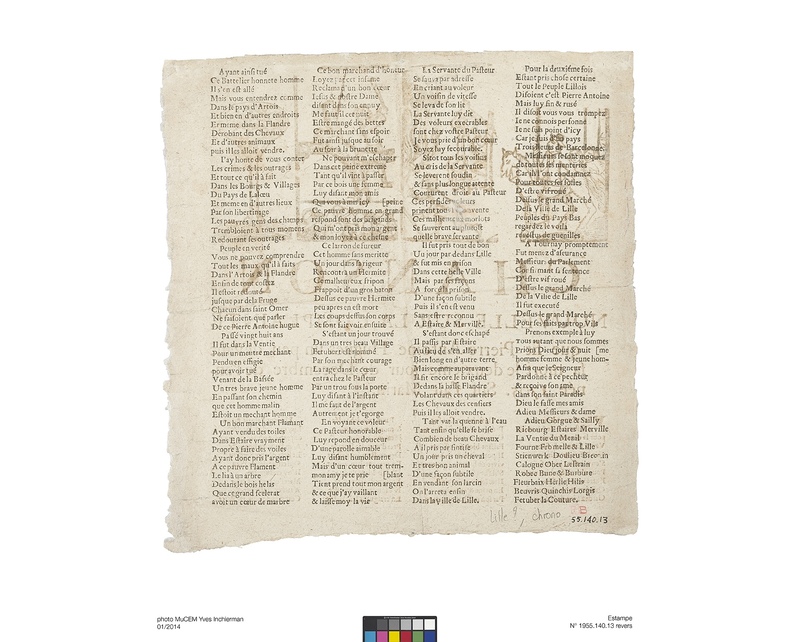 Ayant ainsi tué
Ce Battelier honneste homme
Il s'en est allé
Mais vous entendrez comme
Dans le pays d'Artois
Et bien en d'autres endroits
Et meme dans la Flandre
Dérobant des Chevaux
Et d'autres animaux
puis il les alloit vendre.
J'ay honte de vous conter
Les crimes & les outrages
Et tout ce qu'il a fait
Dans les Bourgs & Villages
Du Pays de Laleu
Et meme en d'autres lieux
Par son libertinage
Les pauvres gens des champs
Trembloient à tous momens
Redoutant ses outrages
Peuple en verité
Vous ne pouvez comprendre
Tout les maux qu'il à faits
Dans l'Artois & la Flandre
Enfin de tout costé
Il estoit redouté
jusque par de la Bruge
Chacun dans saint Omer
Ne faisoient que parler
De ce Pierre Antoine hugue
Passé vingt huit ans
Il fut dans la Ventie
Pour un meutre mechant
Pendu en effigie
pour avoir tué
Venant de la Bassée
Un tres brave jeune homme
En passant son chemin
que cet homme malin
Estoit un mechant homme
Un bon marchand Flamant
Ayant vendu des toiles
Dans Estaire vrayment
Propre à faire des voiles
Ayant donc pris l'argent
A ce pauvre Flament
Le lia à un arbre
Dedans le bois helas
Que ce grand scelerat
avoit un cœur de marbre
Ce bon marchand d'honeur
Loyez à cet infame
Reclama d'un bon cœur
Iesus & nostre Dame
disoit dans son ennuy
Me faut il cet nuit
Estre mangé des bettes
Ce marchand sans espoir
Fut ainsi jusque au soir
Au soir à la brunette
Ne pouvant m'echaper
Dans cet peine extreme
Tant qu'il vint à passer
Par ce bois une femme
Luy disant mon amis
Qui vous à mis icy [peine
Ce pauvre homme en grand
respond sont des brigands
Qui m'ont pris mon argent
& mon loyez à ce chesne
Ce larron de fureur
Cet homme sans merite
Un jour dans Arigeur
Rencontra un Hermite
Ce malheureux fripon
Frappoit d'un gros baton
Dessus ce pauvre Hermite
peu apres en tous lieux
Les coups dessus son corps
Se sont fait voir ensuite
S'estant un jour trouvé
Dans un tres beau Village
Ferubert est nommé
Par son mechant courage
La rage dans le cœur
entra chez le Pasteur
Par un trou sous la porte
Luy disant à l'instant
Il me faut de l'argent
Autrement je t'egorge
En voyant ce voleur
Ce Pasteur honorable
Luy repond en douceur
D'une parolle aimable
Luy disant humblement
Mais d'un cœur tout trem-
mon amy je te prie [blant
Tient prend tout mon argent
& ce que j'ay vaillant
& laisse moy la vie
La Servante du Pasteur
Se sauva par adresse
En criant au voleur
Un voisin de vitesse
Se leva de son lit
La Servante luy dit
Des voleurs execrables
sont chez vostre Pasteur
Je vous prie d'un bon cœur
Soyez luy secourable.
Sitot tous les voisins
Au cris de la Servante
Se leverent soudain
& sans plus longue attente
Coururent droit au Pasteur
Ces perfides voleurs
prirent tous épouvente
Ces malheureux mortels
Se sauverent au plustost
quelle brave servante
Il fut pris tout de bon
Un jour par dedans Lille
& fut mis en prison
Dans cette belle Ville
Mais par façons
A forcé sa prison
D'une façon subtile
Puis il s'est en venu
Sans estre reconnu
A Estaire & Merville.
S'estant donc echapé
Il passis par Estaire
Au lieu de s'en aller
Bien long en d'autre terre,
Mais comme auparavant
Il fit encore le brigand
Dedans la basse Flandre
Volant dans ces quartiers
Les Chevaux des censiers
Puis il les alloit vendre.
Tant va la quenne à l'eau
Tant enfin qu'elle se brise
Combien de beau Chevaux
A-il pris par sintise
Un jour pris un cheval
Et tres bon animal
D'une façon subtile
En vendant son larcin
On l'arreta ensin
Dans la ville de Lille.
Pour la deuxiéme fois
Estant pris chose certaine
Tout le Peuple Lillois
Disoient c'est Pierre Antoine
Mais luy fin & rusé
Il disoit vous vous trompez
Ie ne connois personne
Ie ne suis point d'icy
Car je suis du pays
Trois lieues de Barcelonne.
Messieurs se sont moquez
de toutes ses menteries
Car ils l'ont condannez
Pour toutes ses folies
D'estre vif roüé
Dessus le grand Marché
De la Ville de Lille
Peuples du Pays Bas
regardez le voilà
A Tournay promptement
Fut mené d'assurance
Messieurs du Parlement
Confirmant sa sentence
D'estre vif roüé
Dessus le grand Marché
De la Ville de Lille
Il fut executé
Dessus le grand Marché
Pour ses faits par trop Vils
Prenons exemple à luy
Tous autant que nous sommes
Prions Dieu jour & nuit [me
homme femme & jeune hom-
Afin que le Seigneur
Pardonne à ce pecheur
& reçoive son ame
dans son saint Paradis
Dieu le fasse mes amis
Adieu Messieurs & dame
Adieu Gorgue & Sailly
Richourg Estaires Merville
La Ventie du Mesnil
Fourne Fromelle & Lille
Steenwerk Doulieu Berquin
Calogne Ober Lestrain
Robiue Bune & Burbure
Fleurbaix Herlie Hilis
Beuvris Quinchis Lorgis
Ferubert la Couture.
Lille ?, chrono
B
55.140.13
photo MuCEM Yves Inchierman
01/2014
Estampe
N° 1955.140.13 revers